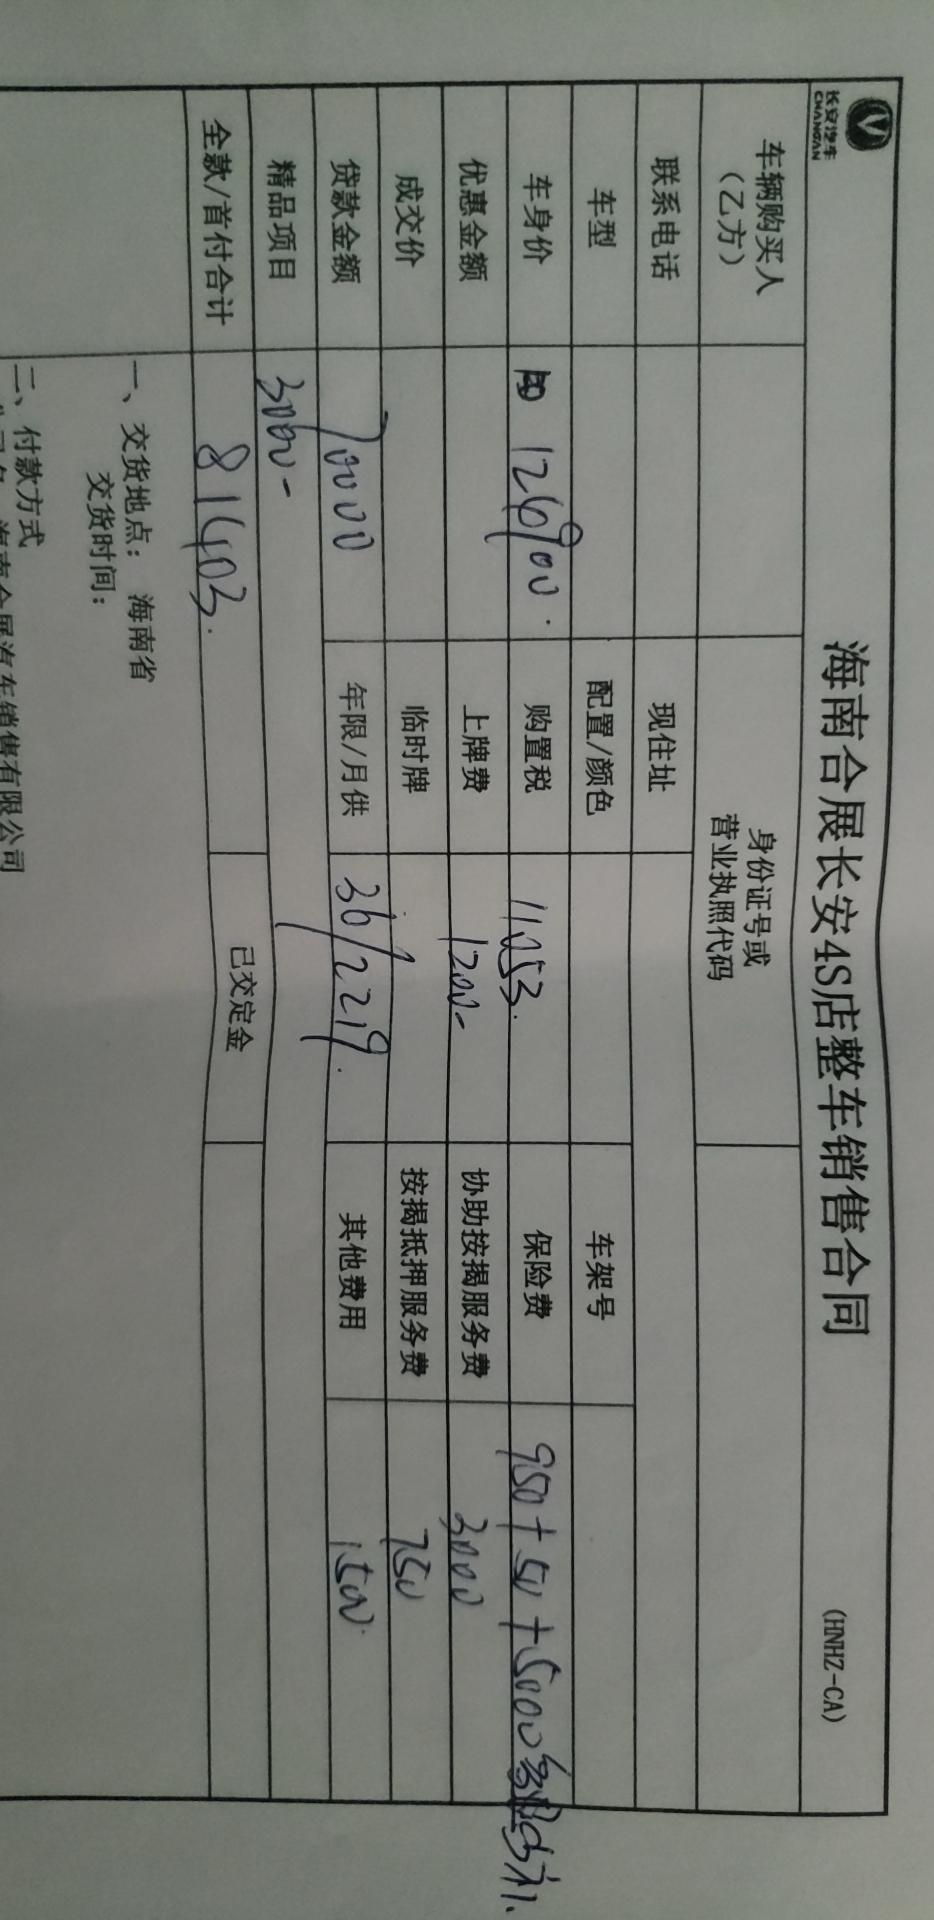 长安汽车
CHANGAN
海南合展长安4S店整车销售合同
(HNHZ-CA)
车辆购买人
(乙方)
身份证号或
营业执照代码
联系电话
现住址
车型
配置/颜色
车架号
车身价
126900.
购置税
11053.
保险费
950+50+5000多退少补.
优惠金额
上牌费
1200-
协助按揭服务费
3000
成交价
临时牌
按揭抵押服务费
750
贷款金额
70000
年限/月供
36/2219.
其他费用
1500.
精品项目
3000-
全款/首付合计
81403.
已交定金
一、交货地点: 海南省
交货时间:
二、付款方式
海南合展汽车销售有限公司